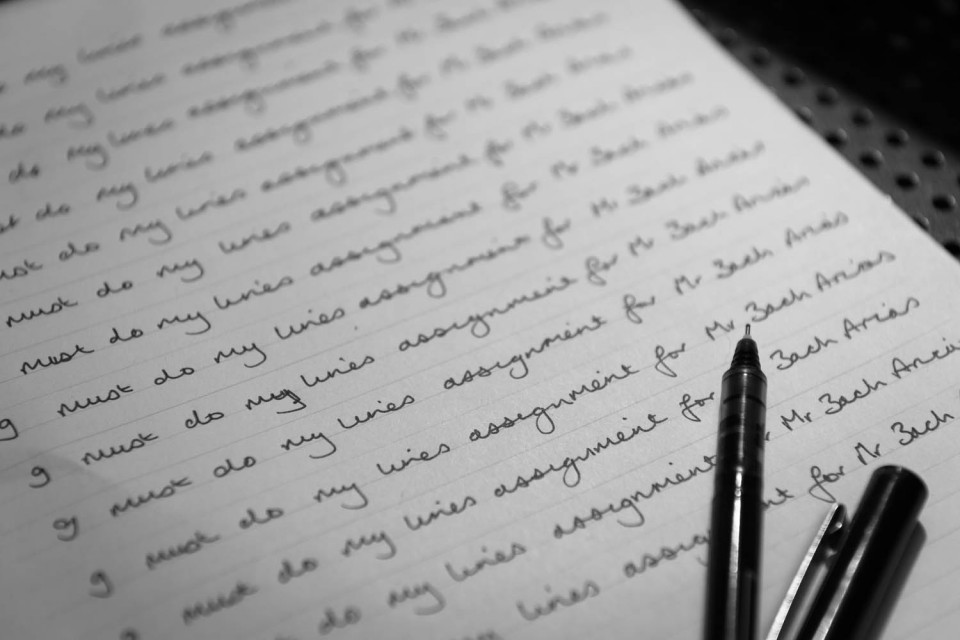 my lines
my lines assignment for
do my lines assignment for Mr
do my lines assignment for Mr Zach Arias
do my lines assignment for Mr Zach Arias
must do my lines assignment for Mr Zach Arias
must do my lines assignment for Mr Zach Arias
I must do my lines assignment for Mr Zach Arias
I must do my lines assignment for Mr Zach Arias
I must do my lines assignment for Mr Zach Arias
I must do my lines assignment for Mr Zach Arias
must do my lines assignment for Zach Arias
do my lines assignment Mr Zach Arias
lines for Mr Zach